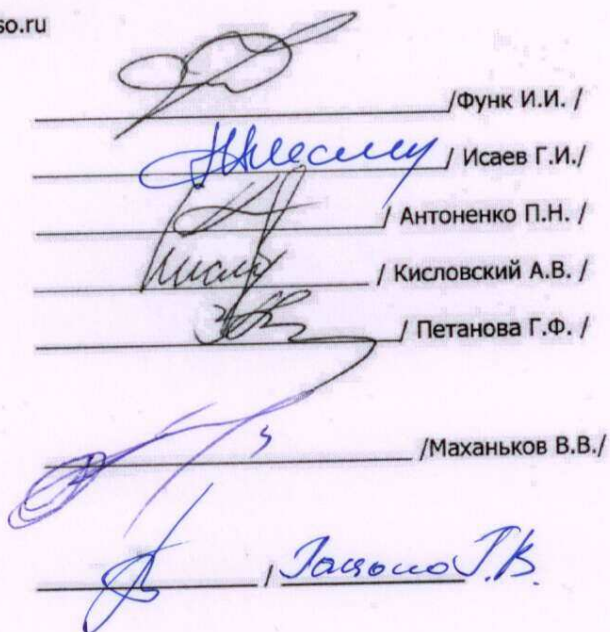 so.ru
/Функ И.И. /
/ Исаев Г.И./
/ Антоненко П.Н. /
/ Кисловский А.В. /
/ Петанова Г.Ф. /
/Маханьков В.В./
/ Г.В.